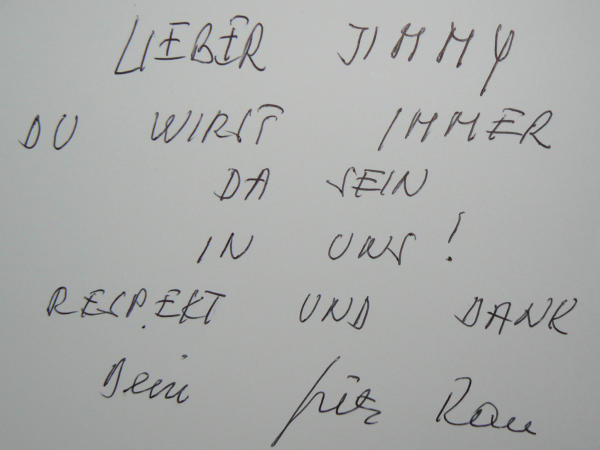 LIEBER JIMMY
DU WIRST IMMER
DA SEIN
IN UNS!
RESPEKT UND DANK
Dein Fritz Rau